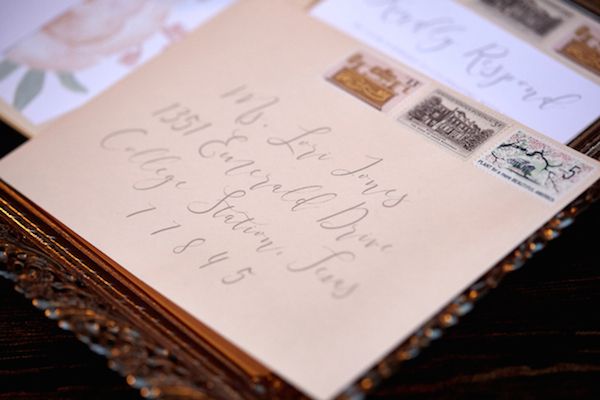 Kindly Respond
Ms. Lori Jones
1351 Emerald Drive
College Station, Texas
77845
PLANT for a more BEAUTIFUL AMERICA
5